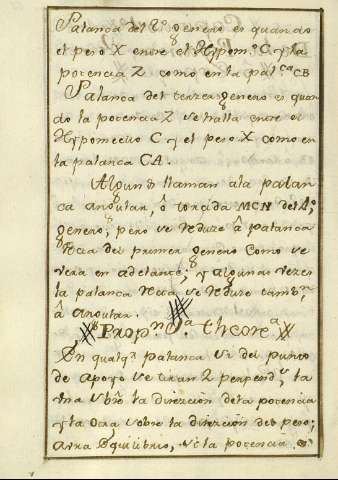 Palanca del 2º genero es quando
el peso X entre el Hypom.º C, y la
potencia Z como en la pal.ca CB
Palanca del tercer genero es quan
do la potencia Z se halla entre el
Hypomeclio C y el peso X como en
la palanca CA.
Algunos llaman ala palan
ca angular, ô torcida MCN del 4º
genero; pero se reduze â palanca
recta del primer genero como se
vera en adelante; y algunas vezes
la palanca recta se reduze tamb.n
â angular.
Prop.n 5.ª Theore.ª
En qualq.ª palanca si del punto
de apoyo se tiran 2 perpend.s la
una sbre la direzion dela potencia
y la otra sobre la direzion del peso;
avra Equilibrio, si la potencia